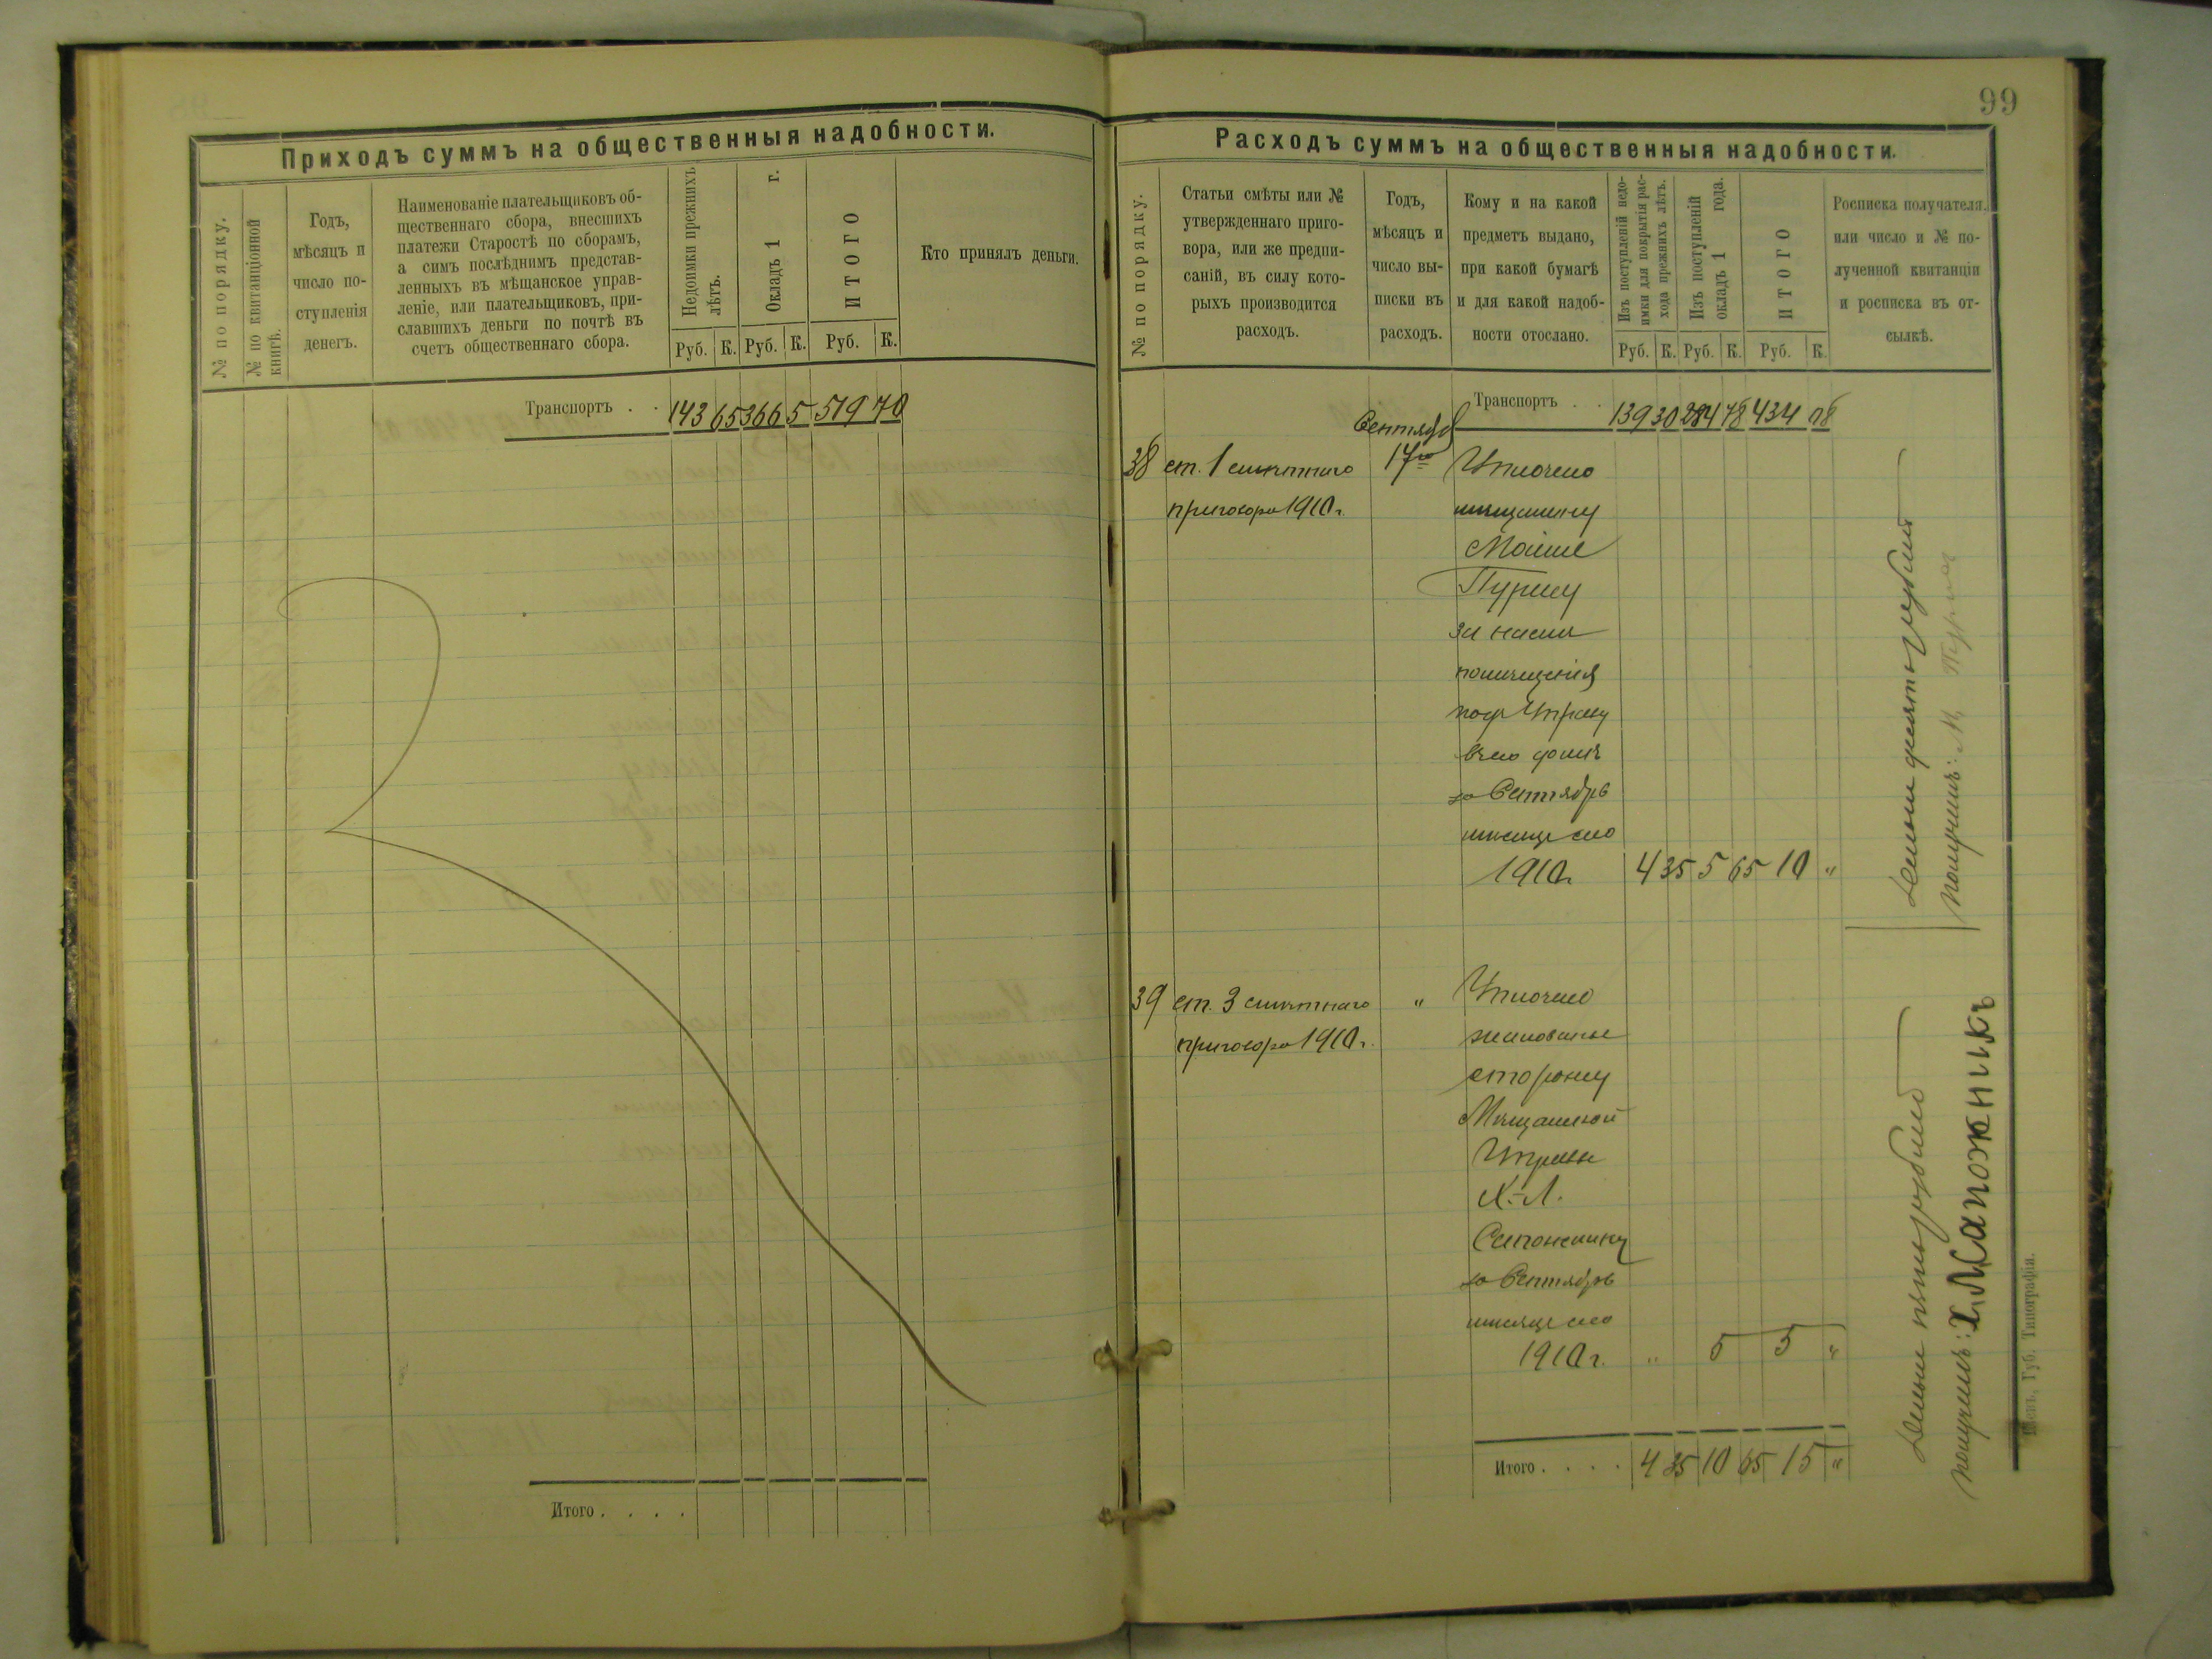 Приходъ суммъ на общественныя надобности.
№ по порядку.
№ по квитанціонной
книгѣ.
Годъ,
мѣсяцъ и
число по-
ступленія
денегъ.
Наименованіе плательщиковъ об-
щественнаго сбора, внесшихъ
платежи Старостѣ по сборамъ,
а симъ послѣднимъ представ-
ленныхъ въ мѣщанское управ-
леніе, или плательщиковъ, при-
славшихъ деньги по почтѣ въ
счетъ общественнаго сбора.
Недоимки прежнихъ
лѣтъ.
Окладъ 1 г.
ИТОГО
Руб. К. Руб. К. Руб. К.
Кто принялъ деньги.
Транспортъ . . 143 65 366 5 519 70
Итого . . . .
99
Расходъ суммъ на общественныя надобности.
№ по порядку.
Статьи смѣты или №
утвержденнаго приго-
вора, или же предпи-
саній, въ силу кото-
рыхъ производится
расходъ.
Годъ,
мѣсяцъ и
число вы-
писки въ
расходъ.
Кому и на какой
предметъ выдано,
при какой бумагѣ
и для какой надоб-
ности отослано.
Изъ поступленій недо-
имки для покрытія рас-
хода прежнихъ лѣтъ.
Изъ поступленій
окладъ 1 года.
ИТОГО
Руб. К. Руб. К. Руб. К.
Росписка получателя.
или число и № по-
лученной квитанціи
и росписка въ от-
сылкѣ.
Транспортъ . . 139 30 284 78 434 08
Сентября
38 ст. 1 смѣтнаго 17го Уплочено
приговора 1910 г. мѣщанину
Мойше
Пурису
за наем
помѣщенія
под Управу
въ его домѣ
за Сентябрь
мѣсяцъ сего
1910 г. 4 35 5 65 10 "
Деньги десять рублей
получилъ: М. Пурис
39 ст. 3 смѣтнаго " Уплочено
приговора 1910 г. жалованье
сторожу
Мѣщанской
Управы
Х.-Л.
Сапожнику
за Сентябрь
мѣсяцъ сего
1910 г. " 5 5 "
Деньги пять рублей
получилъ: Х. Л Сапожникъ
Итого . . . . 4 35 10 65 15 "
Губ. Типографія.